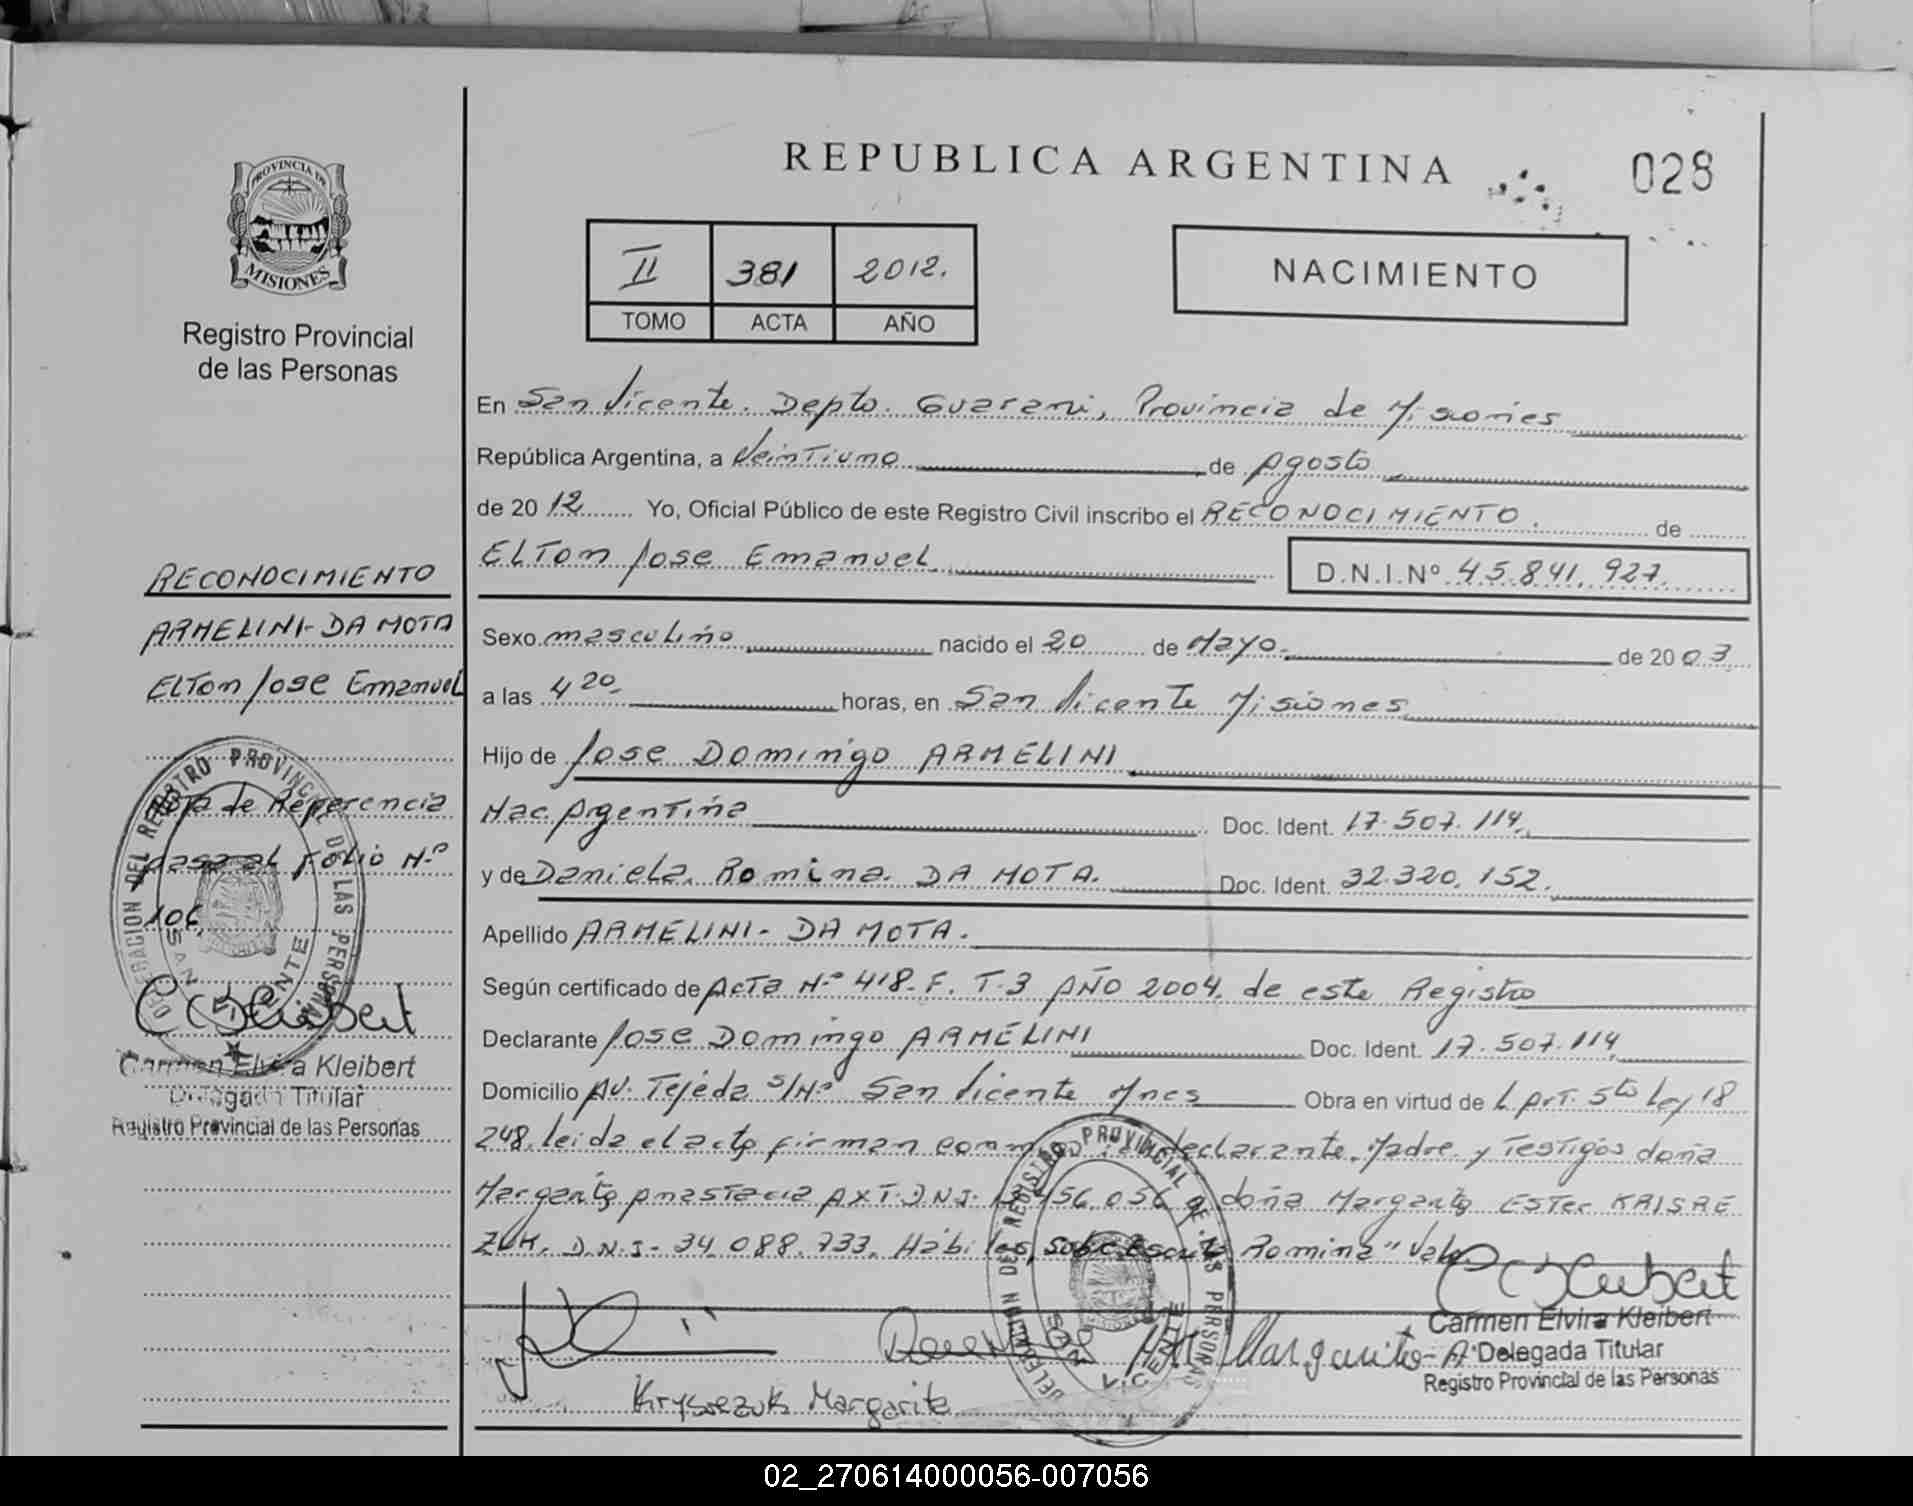 REPUBLICA ARGENTINA
028
PROVINCIA DE
MISIONES
Registro Provincial
de las Personas
II 381 2012.
TOMO ACTA AÑO
NACIMIENTO
En San Vicente. Depto. Guarani, Provincia de Misiones
República Argentina, a Veintiuno de Agosto
de 2012 Yo, Oficial Público de este Registro Civil inscribo el RECONOCIMIENTO. de
Elton Jose Emanuel D.N.I.Nº 45.841.927.
Sexo masculino nacido el 20 de Mayo de 2003
a las 4 20 horas, en San Vicente Misiones
Hijo de Jose Domingo ARMELINI
Nac Argentina Doc. Ident. 17.507.114.
y de Daniela Romina DA MOTA. Doc. Ident. 32.320.152.
Apellido ARMELINI-DA MOTA.
Según certificado de Acta Nº 418-F. T.3 AÑO 2004. de este Registro
Declarante Jose Domingo ARMELINI Doc. Ident. 17.507.114
Domicilio AV. Tejeda S/Nº San Vicente Mnes Obra en virtud de L Art. 5to Ley 18
248. leida el acta firman declarante, Madre y Testigos doña
Margarita Anastacia AXT. D.N.I. 456.056 doña Margarita Ester KRISRE
ZUK. D.N.I- 34.088.733. Habiles, Romina" Vale
RECONOCIMIENTO
ARMELINI-DA MOTA
Elton Jose Emanuel
Nota de Referencia
pasa al Folio Nº
106.
DELEGACION DEL REGISTRO PROVINCIAL DE LAS PERSONAS
SAN VICENTE
Carmen Elvira Kleibert
Delegada Titular
Registro Provincial de las Personas
DELEGACION DEL REGISTRO PROVINCIAL DE LAS PERSONAS
SAN VICENTE
Margarita A
Carmen Elvira Kleibert
Delegada Titular
Registro Provincial de las Personas
Margarita
02_270614000056-007056